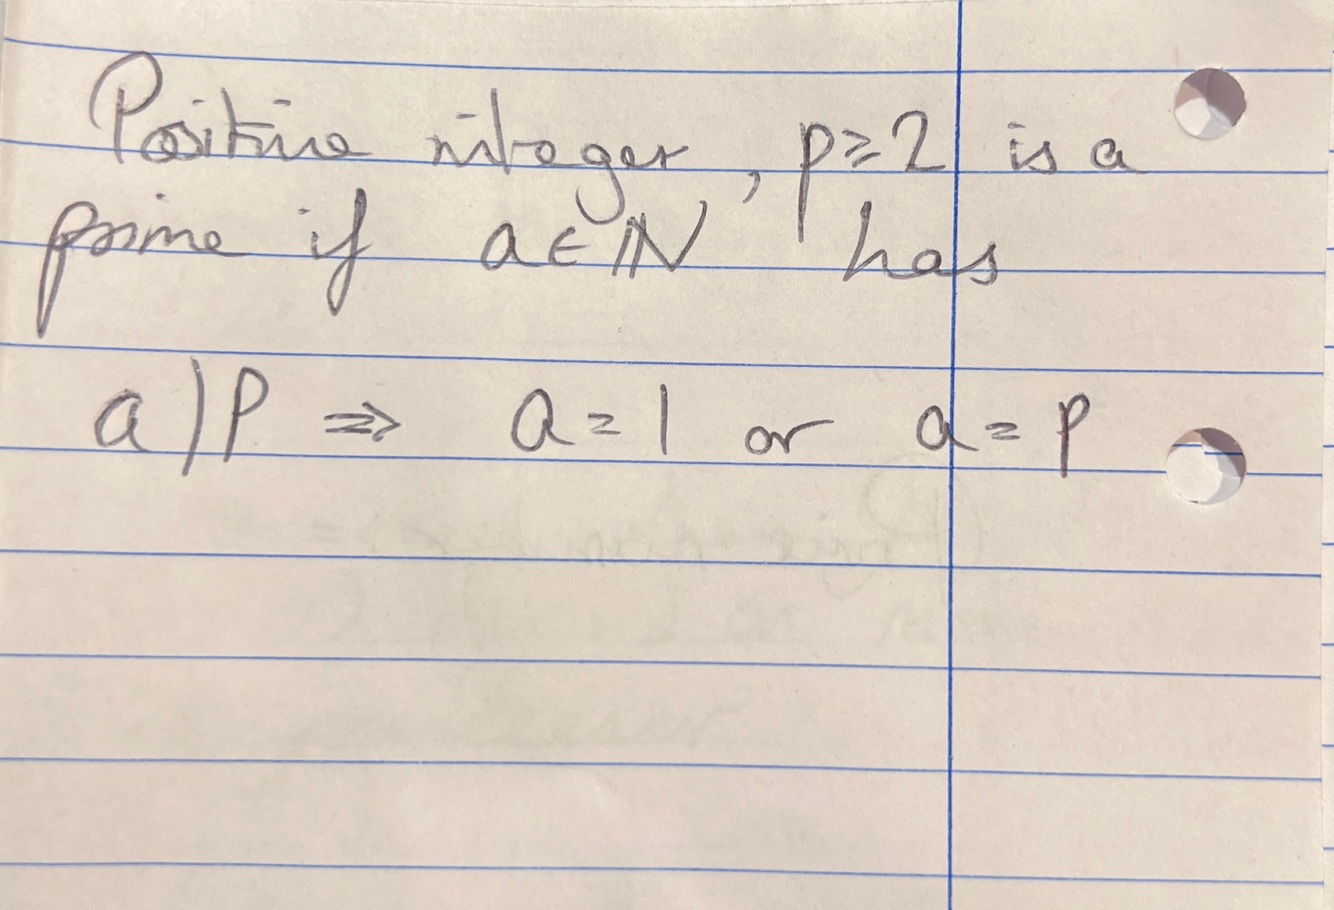 Positive integer, p ≥ 2 is a
prime if a ∈ ℕ has
a | P ⇒ a = 1 or a = p